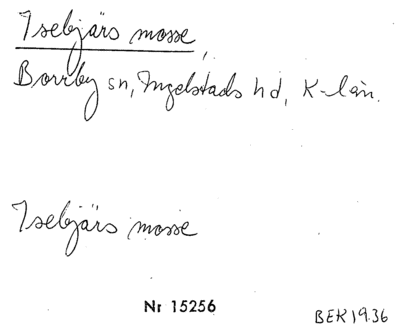 Isebjärs mosse,
Borrby sn, Ingelstads hd, K-län.
Isebjärs mosse
Nr 15256
BEK 1936